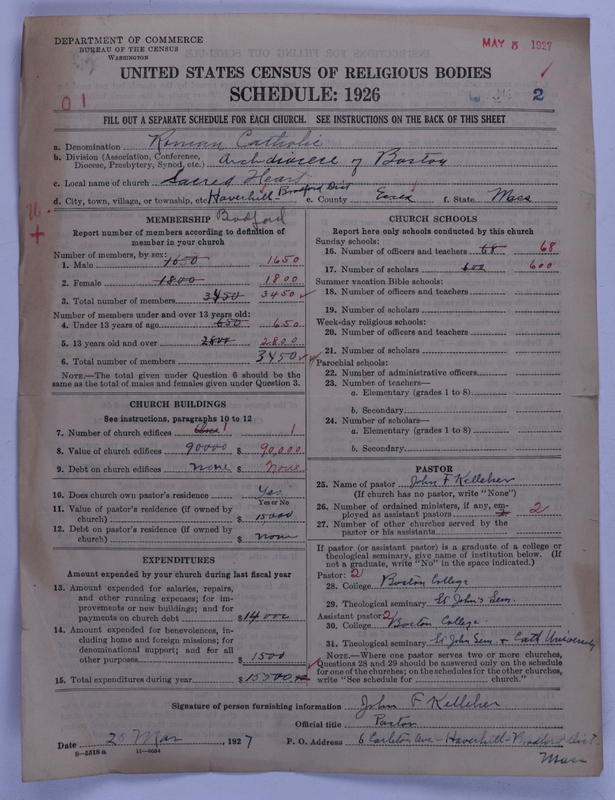 DEPARTMENT OF COMMERCE
BUREAU OF THE CENSUS
WASHINGTON
MAY 5 1927
UNITED STATES CENSUS OF RELIGIOUS BODIES
SCHEDULE: 1926
01
2
FILL OUT A SEPARATE SCHEDULE FOR EACH CHURCH. SEE INSTRUCTIONS ON THE BACK OF THIS SHEET
a. Denomination Roman Catholic
b. Division (Association, Conference, Diocese, Presbytery, Synod, etc.) Archdiocese of Boston
c. Local name of church Sacred Heart
d. City, town, village, or township, etc. Haverhill-Bradford Dist e. County Essex f. State Mass
Bradford
MEMBERSHIP
Report number of members according to definition of
member in your church
Number of members, by sex:
1. Male 1650 1650
2. Female 1800 1800
3. Total number of members 3450 3450
Number of members under and over 13 years old:
4. Under 13 years of age 650 650
5. 13 years old and over 2800 2800
6. Total number of members 3450
NOTE.—The total given under Question 6 should be
same as the total of males and females given under Question 3.
CHURCH BUILDINGS
See instructions, paragraphs 10 to 12
7. Number of church edifices 1 1
8. Value of church edifices 90000 $ 90,000
9. Debt on church edifices none $ none
10. Does church own pastor's residence Yes
Yes or No
11. Value of pastor's residence (if owned by
church) $ 15000
12. Debt on pastor's residence (if owned by
church) $ none
EXPENDITURES
Amount expended by your church during last fiscal year
13. Amount expended for salaries, repairs,
and other running expenses; for im-
provements or new buildings; and for
payments on church debt $ 14000
14. Amount expended for benevolences, in-
cluding home and foreign missions; for
denominational support; and for all
other purposes $ 1500
15. Total expenditures during year $ 15,500
CHURCH SCHOOLS
Report here only schools conducted by this church
Sunday schools:
16. Number of officers and teachers 68 68
17. Number of scholars 600 600
Summer vacation Bible schools:
18. Number of officers and teachers
19. Number of scholars
Week-day religious schools:
20. Number of officers and teachers
21. Number of scholars
Parochial schools:
22. Number of administrative officers
23. Number of teachers—
a. Elementary (grades 1 to 8)
b. Secondary
24. Number of scholars—
a. Elementary (grades 1 to 8)
b. Secondary
PASTOR
25. Name of pastor John F Kelleher
(If church has no pastor, write "None")
26. Number of ordained ministers, if any, em-
ployed as assistant pastors 2
27. Number of other churches served by the
pastor or his assistants
If pastor (or assistant pastor) is a graduate of a college or
theological seminary, give name of institution below. (If
not a graduate, write "No" in the space indicated.)
Pastor: 2
28. College Boston College
29. Theological seminary St John's Sem.
Assistant pastor: 2
30. College Boston College
31. Theological seminary St John Sem. + Cath University
NOTE.—Where one pastor serves two or more churches,
Questions 28 and 29 should be answered only on the schedule
for one of the churches; on the schedules for the other churches,
write "See schedule for church."
Signature of person furnishing information John F Kelleher
Official title Pastor
Date 25 Mar, 1927 P. O. Address 6 Carleton Ave - Haverhill - Bradford Dist.
Mass
8—5518 a 11—9034